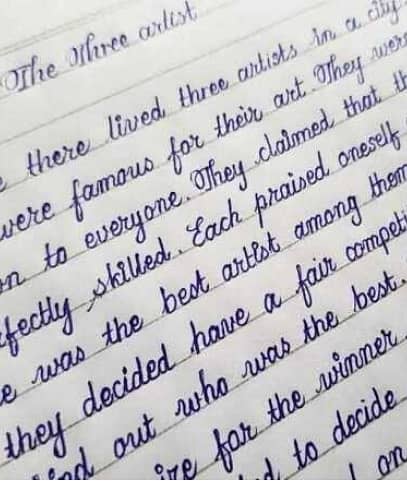 The Three artist
there lived three artists in a city
were famous for their art. They were
to everyone. They claimed that
skilled. Each praised oneself
was the best artist among them
they decided have a fair
out who was the best.
for the winner
to decide